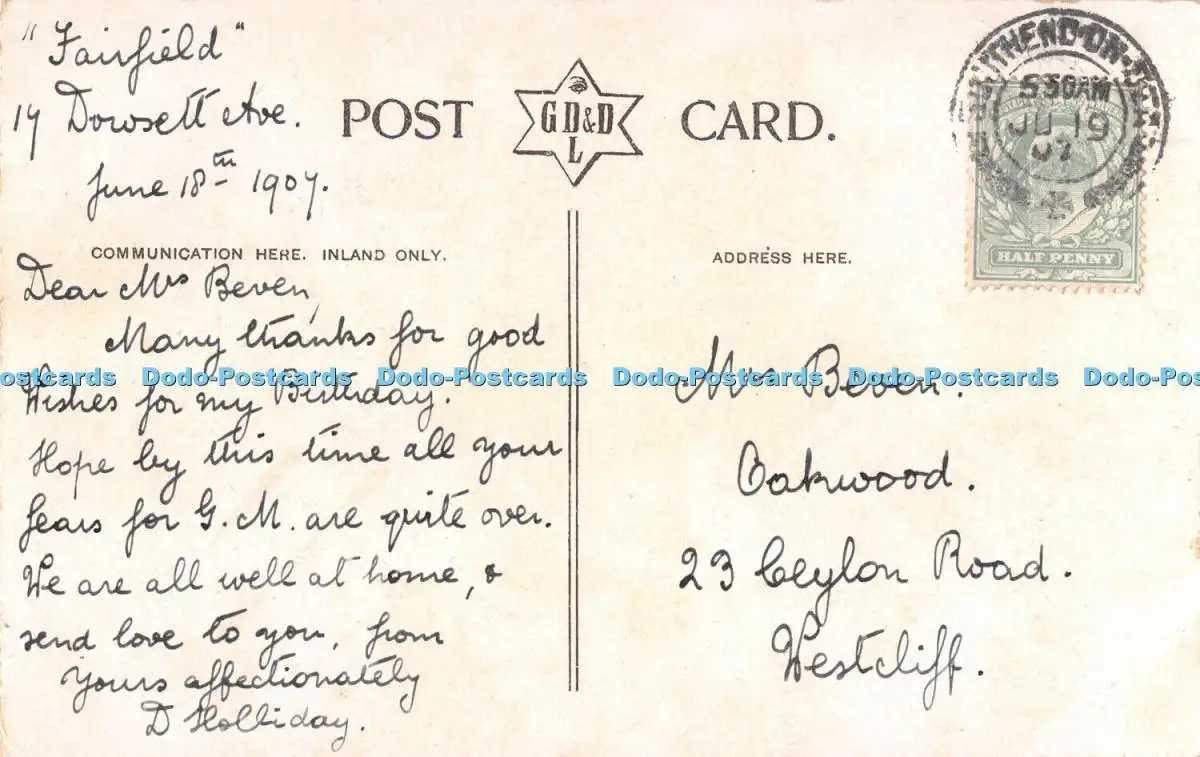 "Fairfield"
17 Dowsett Ave.
June 18th 1907.
POST CARD.
GD&D
L
COMMUNICATION HERE. INLAND ONLY.
ADDRESS HERE.
SOUTHEND-ON-SEA
5 30AM
JU 19
07
HALFPENNY
Dear Mrs Beven,
Many thanks for good
Wishes for my Birthday.
Hope by this time all your
fears for G. M. are quite over.
We are all well at home, &
send love to you, from
Yours affectionately
D Holliday.
Mrs Beven.
Oakwood.
23 Ceylon Road.
Westcliff.
Dodo-Postcards Dodo-Postcards Dodo-Postcards Dodo-Postcards Dodo-Postcards